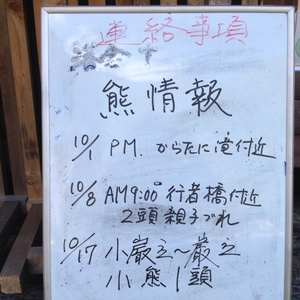 連絡事項
熊情報
10/1 PM. からたに滝付近
10/8 AM9:00 行者橋付近
2頭 親子づれ
10/17 小巌立〜巌立
小熊1頭